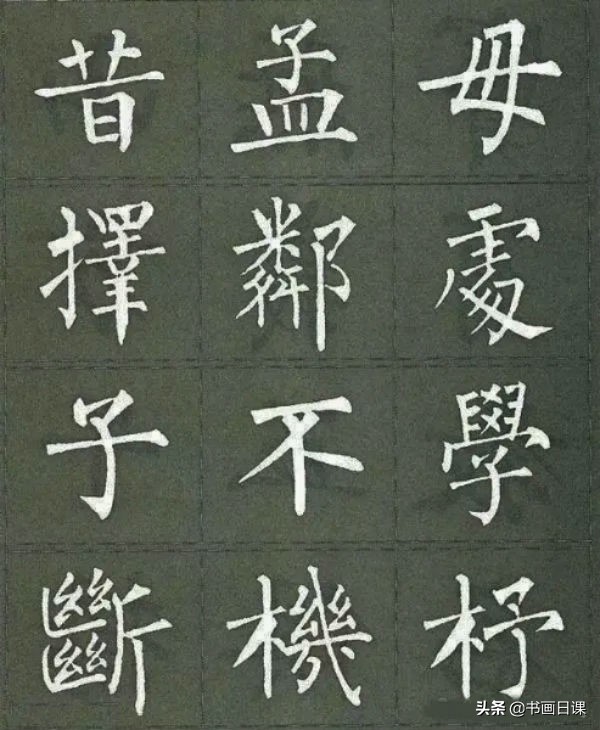 昔孟母
擇鄰處
子不學
斷機杼
头条 @书画日课